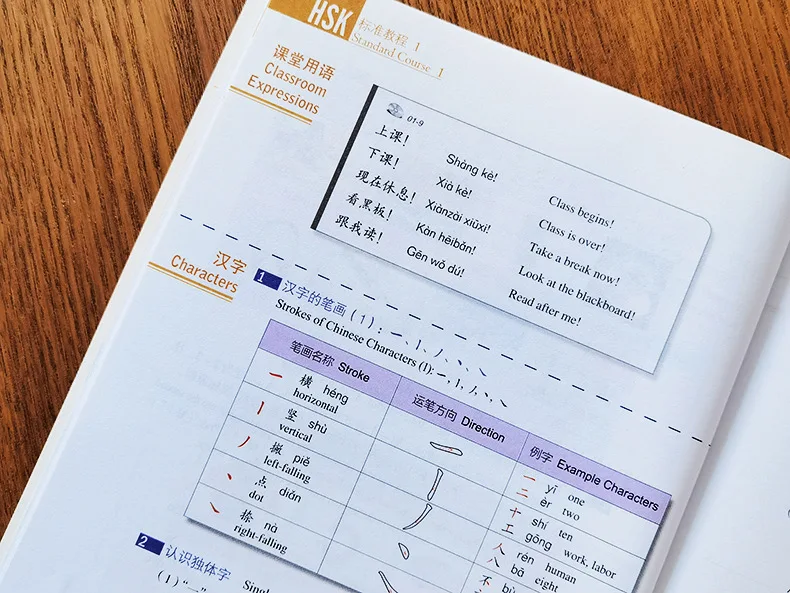 HSK 标准教程 1
Standard Course 1
课堂用语
Classroom
Expressions
01-9
上课! Shàng kè! Class begins!
下课! Xià kè! Class is over!
现在休息! Xiànzài xiūxi! Take a break now!
看黑板! Kàn hēibǎn! Look at the blackboard!
跟我读! Gēn wǒ dú! Read after me!
汉字
Characters
1 汉字的笔画(1):一、丨、丿、丶、㇏
Strokes of Chinese Characters (1):一、丨、丿、丶、㇏
笔画名称 Stroke 运笔方向 Direction 例字 Example Characters
一 横 héng
horizontal
一 yī one
二 èr two
丨 竖 shù
vertical
十 shí ten
工 gōng work, labor
丿 撇 piě
left-falling
人 rén human
八 bā eight
丶 点 diǎn
dot
不 bù
㇏ 捺 nà
right-falling
2 认识独体字
(1)“一”